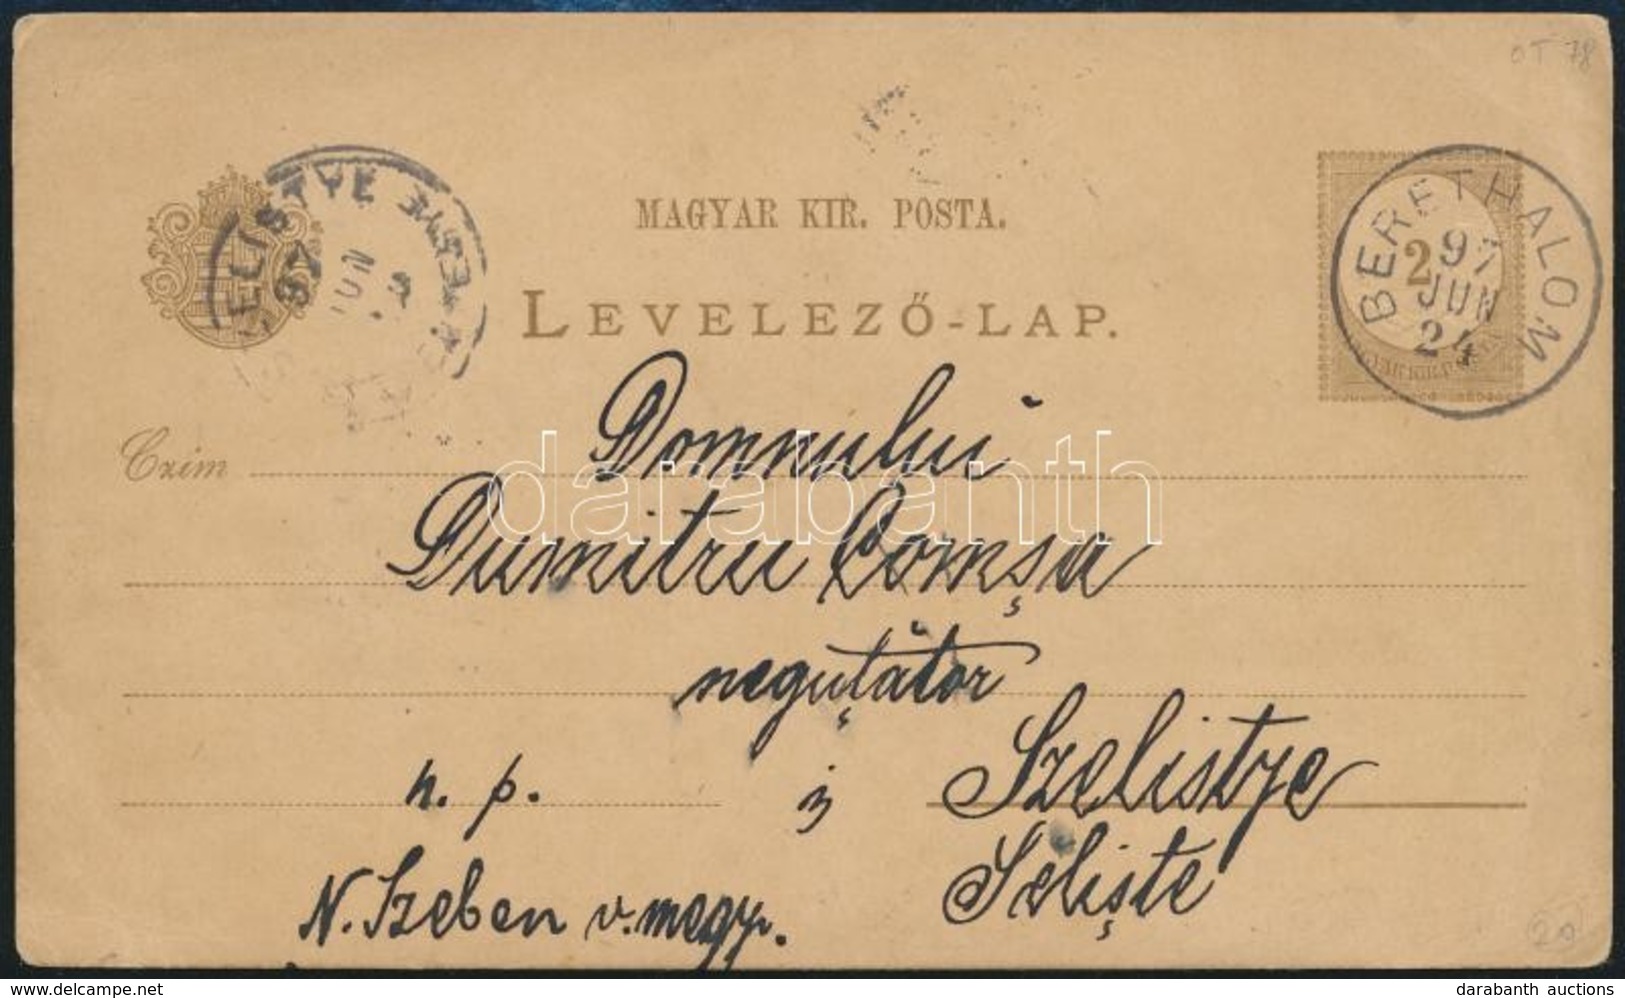 OT 78
SZELISTYE
97
JUN
MAGYAR KIR. POSTA.
LEVELEZŐ-LAP.
BERETHALOM
2
97
JUN
24
Czim
Domnului
Dumitru Comşa
neguţător
n. p. în Szelistye
Selişte
N. Szeben v. megy.
20
darabanth
delcampe.net
darabanth auctions